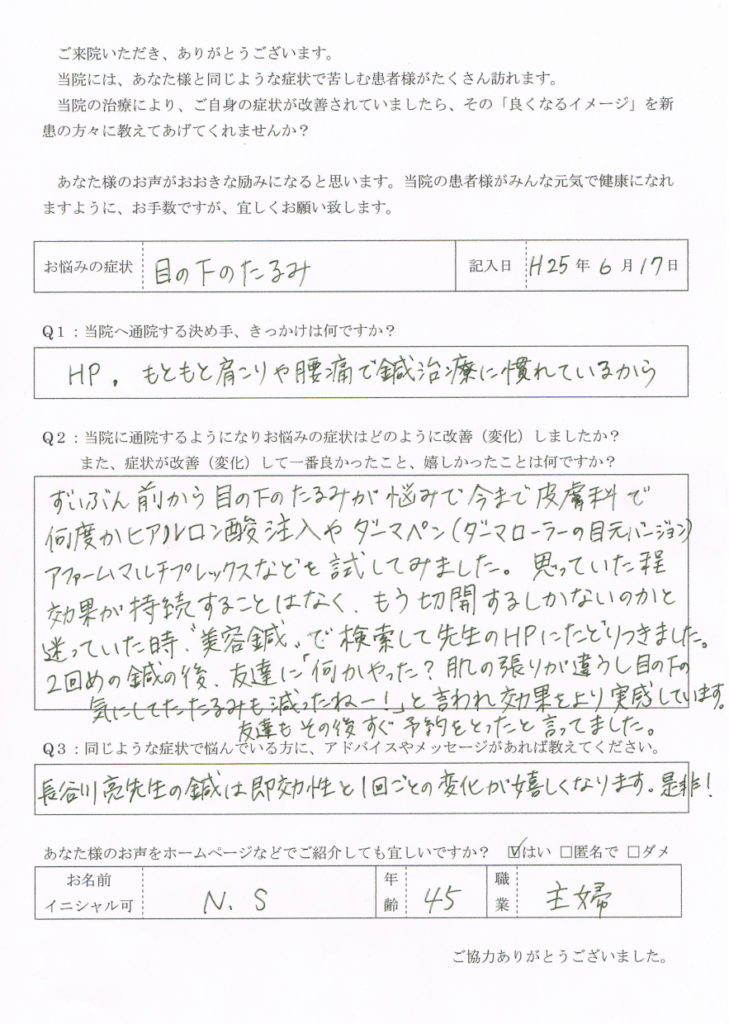 ご来院いただき、ありがとうございます。
当院には、あなた様と同じような症状で苦しむ患者様がたくさん訪れます。
当院の治療により、ご自身の症状が改善されていましたら、その「良くなるイメージ」を新
患の方々に教えてあげてくれませんか？
あなた様のお声がおおきな励みになると思います。当院の患者様がみんな元気で健康になれ
ますように、お手数ですが、宜しくお願い致します。
お悩みの症状 目の下のたるみ 記入日 H25年6月17日
Q1：当院へ通院する決め手、きっかけは何ですか？
HP。もともと肩こりや腰痛で鍼治療に慣れているから
Q2：当院に通院するようになりお悩みの症状はどのように改善（変化）しましたか？
また、症状が改善（変化）して一番良かったこと、嬉しかったことは何ですか？
ずいぶん前から目の下のたるみが悩みで今まで皮膚科で
何度かヒアルロン酸注入やダーマペン(ダーマローラーの目元バージョン)
アファームマルチプレックスなどを試してみました。思っていた程
効果が持続することはなく、もう切開するしかないのかと
迷っていた時、"美容鍼"で検索して先生のHPにたどりつきました。
2回めの鍼の後、友達に「何かやった？肌の張りが違うし目の下の
気にしてたたるみも減ったねー！」と言われ効果をより実感しています。
友達もその後すぐ予約をとったと言ってました。
Q3：同じような症状で悩んでいる方に、アドバイスやメッセージがあれば教えてください。
長谷川亮先生の鍼は即効性と1回ごとの変化が嬉しくなります。是非！
あなた様のお声をホームページなどでご紹介しても宜しいですか？ ☑はい □匿名で □ダメ
お名前 イニシャル可 N.S 年齢 45 職業 主婦
ご協力ありがとうございました。